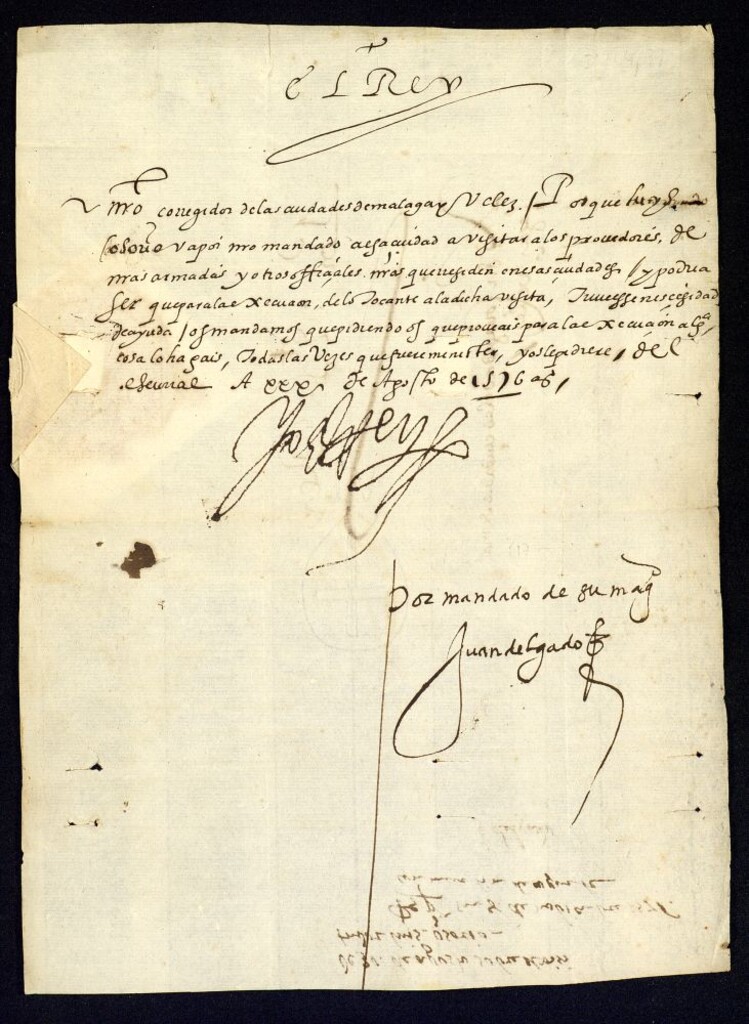 El Rey
nro corregidor delas ciudades de malaga y Velez. Por que luys
Osorio va por nro mandado a esa ciudad a visitar a los provedores, de
nras armadas y otros offiçiales. nrõs que residen en esas ciudades / y podria
ser que para la execuçion, de lo Tocante a la dicha visita, Tuviesse nescesidad
de ayuda / os mandamos que pidiendo os que proveais para la execuçion alga
cosa lo hagais, Todas las Vezes que fuere menister, y os le pidiere, del
escurial A xxx de Agosto de 1576 as,
Yo el Rey
Por mandado de su magd
Juan delgado